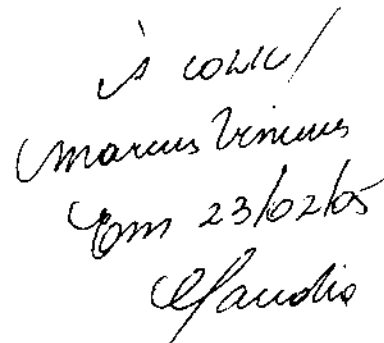 À COLIC/
Marcus Vinicius
Em 23/02/05
Claudia